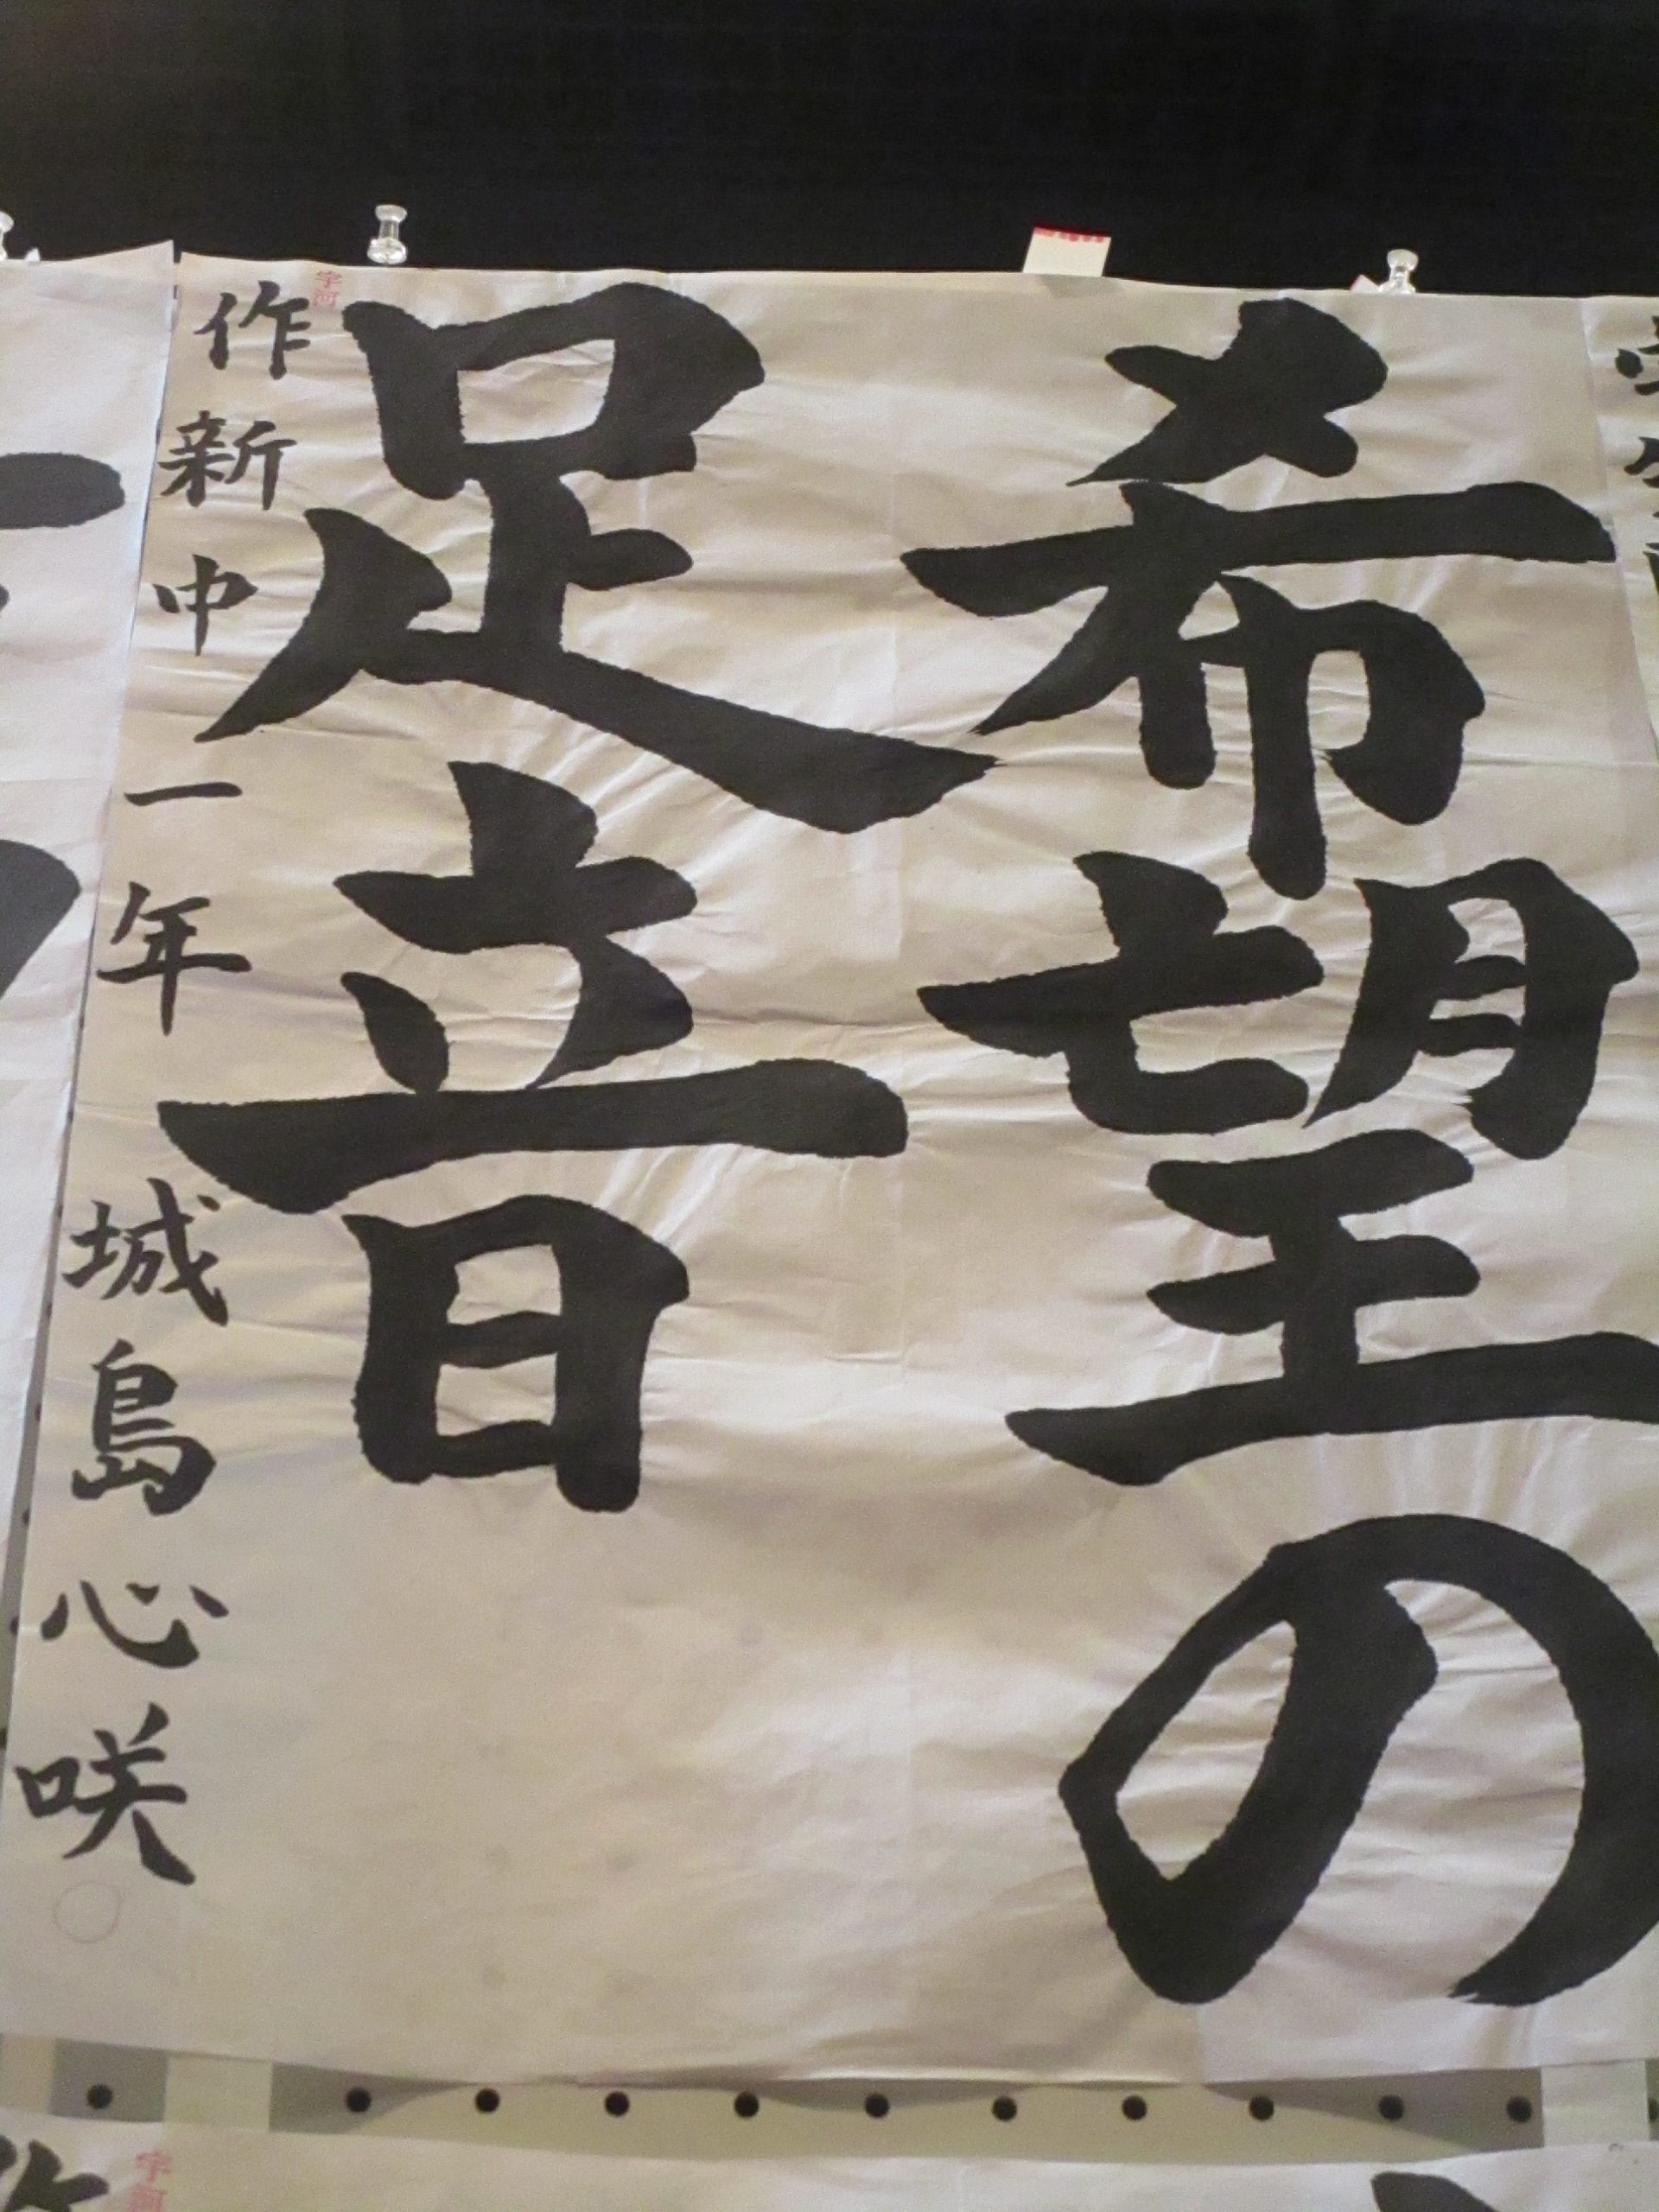 希望の
足音
作新中一年 城島心咲
宇河
宇河